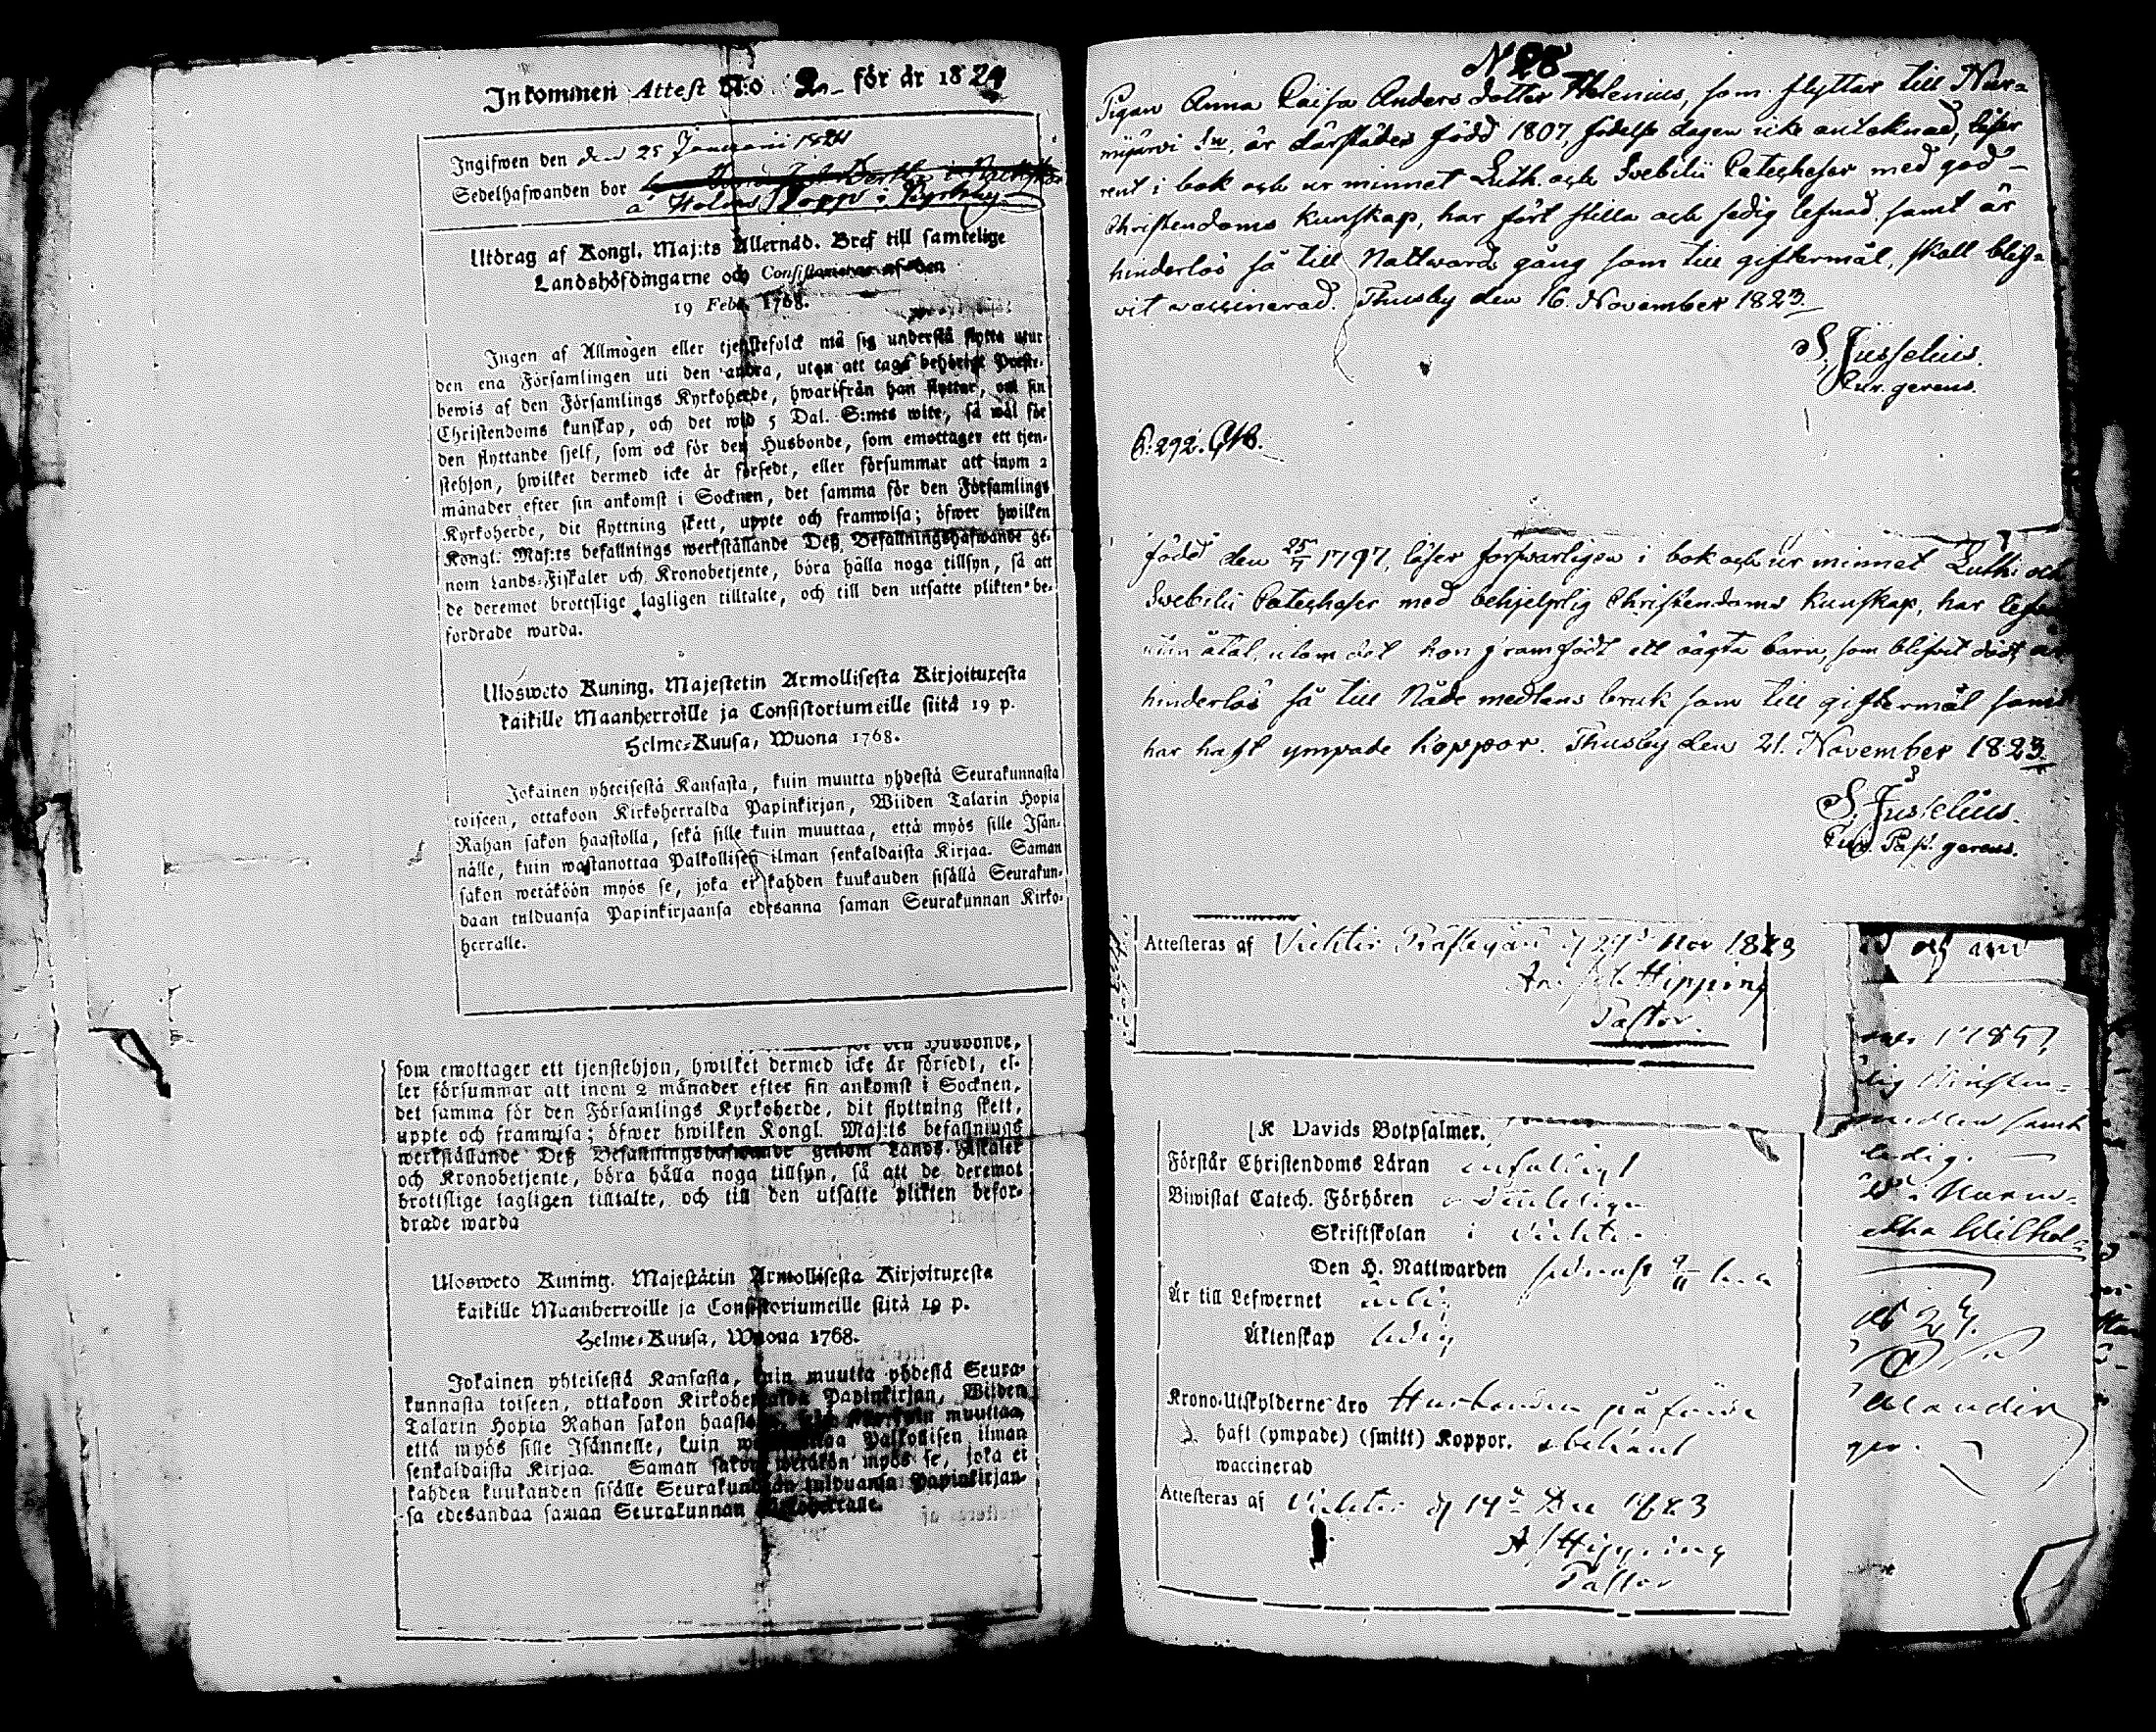 Inkommen Attest N:o 2 för år 1824
Ingifwen den den 25 Januarii 1824
Sedelhafwanden bor
å Holms Stopp i Byrkby
Utdrag af Kongl. Maj:ts Allernåd. Bref till samtelige
Landshöfdingarne och Consistorierne af den
19 Febr. 1768.
Ingen af Allmogen eller tjenstefolck må sig understå flytta utur
den ena Församlingen uti den andra, utan att taga behörigt Preste-
bewis af den Församlings Kyrkoherde, hwarifrån han flyttar, om sin
Christendoms kunskap, och det wid 5 Dal. S:mts wite, så wäl för
den flyttande sjelf, som ock för den Husbonde, som emottager ett tjen-
stehjon, hwilket dermed icke är försedt, eller försummar att inom 2
månader efter sin ankomst i Socknen, det samma för den Församlings
Kyrkoherde, dit flyttning skett, uppte och framwisa; öfwer hwilken
Kongl. Maj:ts befallnings werkställande Deß Befallningshafwande ge-
nom Lands-Fiskaler och Kronobetjente, böra hålla noga tillsyn, så att
de deremot brottslige lagligen tilltalte, och till den utsatte plikten be-
fordrade warda.
Ulosweto Kuning. Majestetin Armollisesta Kirjoituxesta
kaikille Maanherroille ja Consistoriumeille siitä 19 p.
Helme-Kuusa, Wuona 1768.
Jokainen yhteisestä Kansasta, kuin muutta yhdestä Seurakunnasta
toiseen, ottakoon Kirkoherralda Papinkirjan, Wiiden Talarin Hopia
Rahan sakon haastolla, sekä sille kuin muuttaa, että myös sille Isän-
nälle, kuin wastanottaa Palkollisen ilman senkaldaista Kirjaa. Saman
sakon wetäköön myös se, joka ei kahden kuukauden sisällä Seurakun-
daan tulduansa Papinkirjaansa edesanna saman Seurakunnan Kirko-
herralle.
som emottager ett tjenstehjon, hwilket dermed icke är försedt, el-
ler försummar att inom 2 månader efter sin ankomst i Socknen,
det samma för den Församlings Kyrkoherde, dit flyttning skett,
uppte och framwisa; öfwer hwilken Kongl. Maj:ts befallnings
werkställande Deß Befallningshafwande genom Lands-Fiskaler
och Kronobetjente, böra hålla noga tillsyn, så att de deremot
brottslige lagligen tilltalte, och till den utsatte plikten befor-
drade warda
Ulosweto Kuning. Majestätin Armollisesta Kirjoituxesta
kaikille Maanherroille ja Consistoriumeille siitä 19 p.
Helme-Kuusa, Wuona 1768.
Jokainen yhteisestä Kansasta, kuin muutta yhdestä Seura-
kunnasta toiseen, ottakoon Kirkoherralda Papinkirjan, Wiiden
Talarin Hopia Rahan sakon haastolla, kuin muuttaa,
että myös sille Isännelle, kuin Palkollisen ilman
senkaldaista Kirjaa. Saman sakon wetäkön myös se, joka ei
kahden kuukanden sisälle Seurakundaan tulduansa Papinkirjan-
sa edesandaa saman Seurakunnan Kirkoherralle.
N 28
Pigan Anna Caisa Anders dotter Helenius, som flyttar till Nur-
mijärvi Sn, är därstädes född 1807, födelse dagen icke antecknad, läser
rent i bok och ur minnet Luth. och Svebilii Catecheser med god
Christendoms kunskap, har fört stilla och sedig lefnad, samt är
hinderlös så till Nattwards gång som till giftermål, skall blif-
vit vaccinerad. Thusby den 16. November 1823.
S. Jusselius.
Cur. gerens.
P. 292.
född den 25/7 1797, läser försvarligen i bok och ur minnet Luth: och
Svebilii Catecheser med behjelplig Christendoms kunskap, har lefvat
utan åtal, utom det hon framfödt ett oägta barn, som blifvit dödt, är
hinderlös så till Nåde medlens bruk som till giftermål samt
har haft ympade koppor. Thusby den 21. November 1823.
S. Jusselius.
Cur. Past. gerens.
Attesteras af Vichtis Prästegård d 27de Nov 1823
Hipping
Pastor.
K Davids Botpsalmer.
Förstår Christendoms Läran enfaldigt
Biwistat Catech. Förhören
Skriftskolan i Vichtis
Den H. Nattwarden sednast
Är till Lefwernet ärlig
Äktenskap ledig
Krono-Utskylderne äro
haft (ympade) (smitt) Koppor. obekant
waccinerad
Attesteras af Vichtis d 14de Dec 1823
A J Hipping
Pastor
och
1785,
lig Christen-
medlen samt
ledig.
Nurmi-
Wilhel-